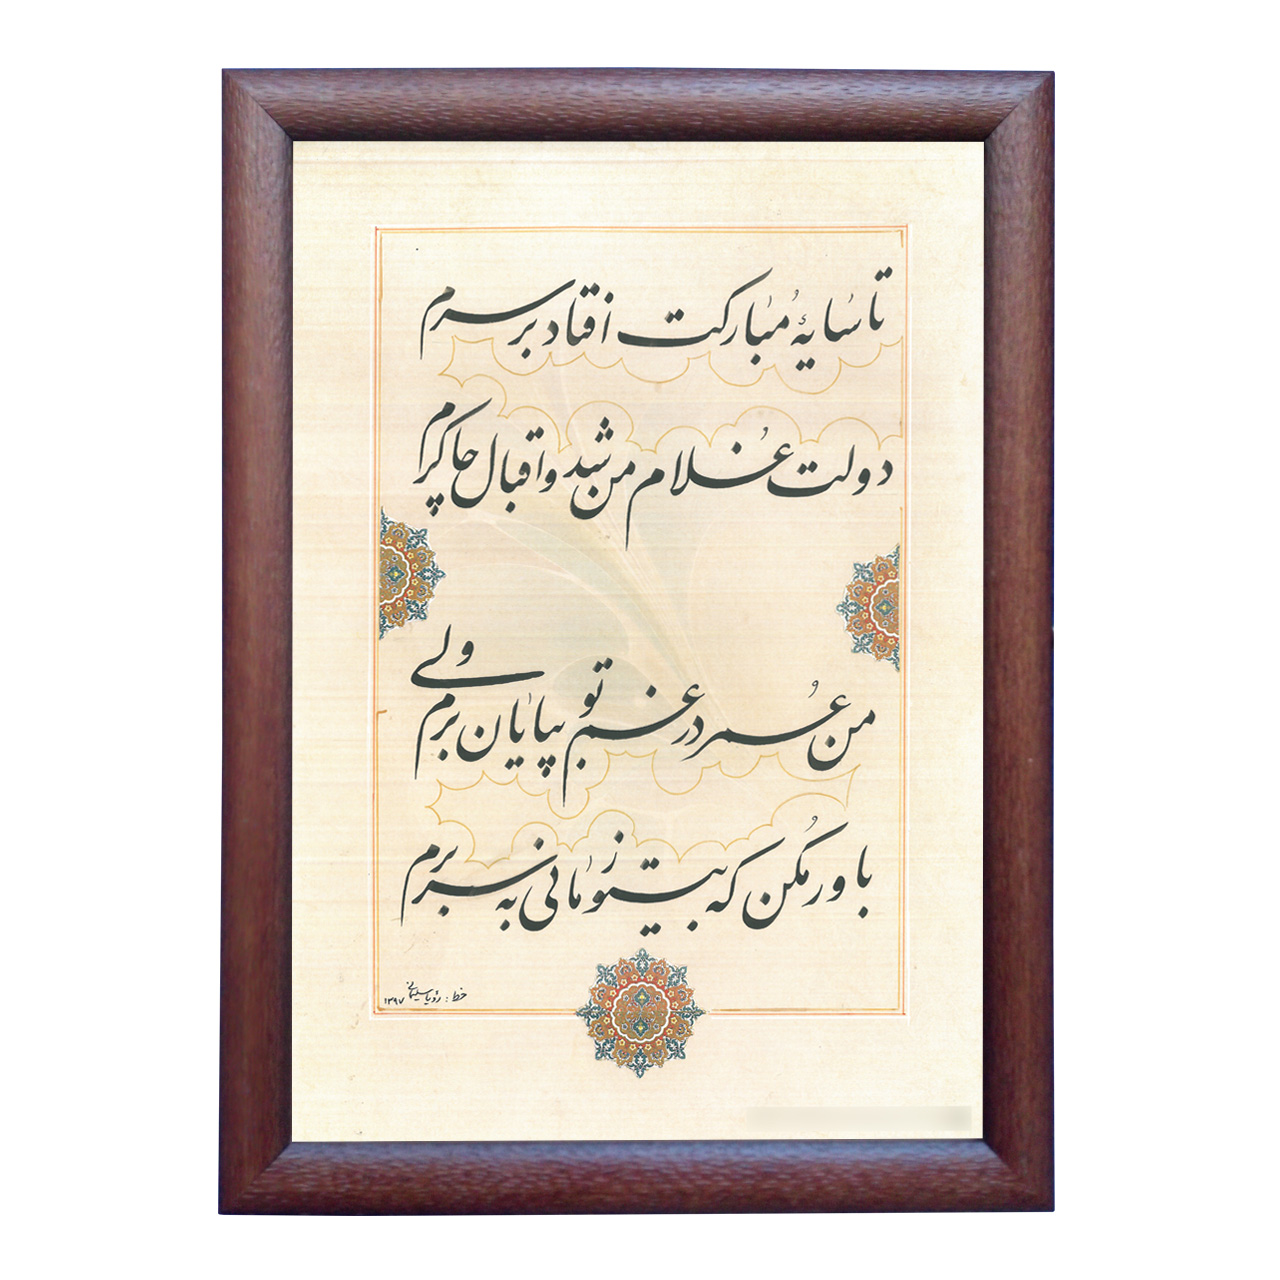 تا سایۀ مُبارکت افتاد بر سرم
دولت غُلام من شد و اقبال چاکرم
من عُمر در غم تو بپایان برم ولی
باور مکُن که بیتو زمانی به سر برم
خط: رؤیا سلیمانی ۱۳۹۷